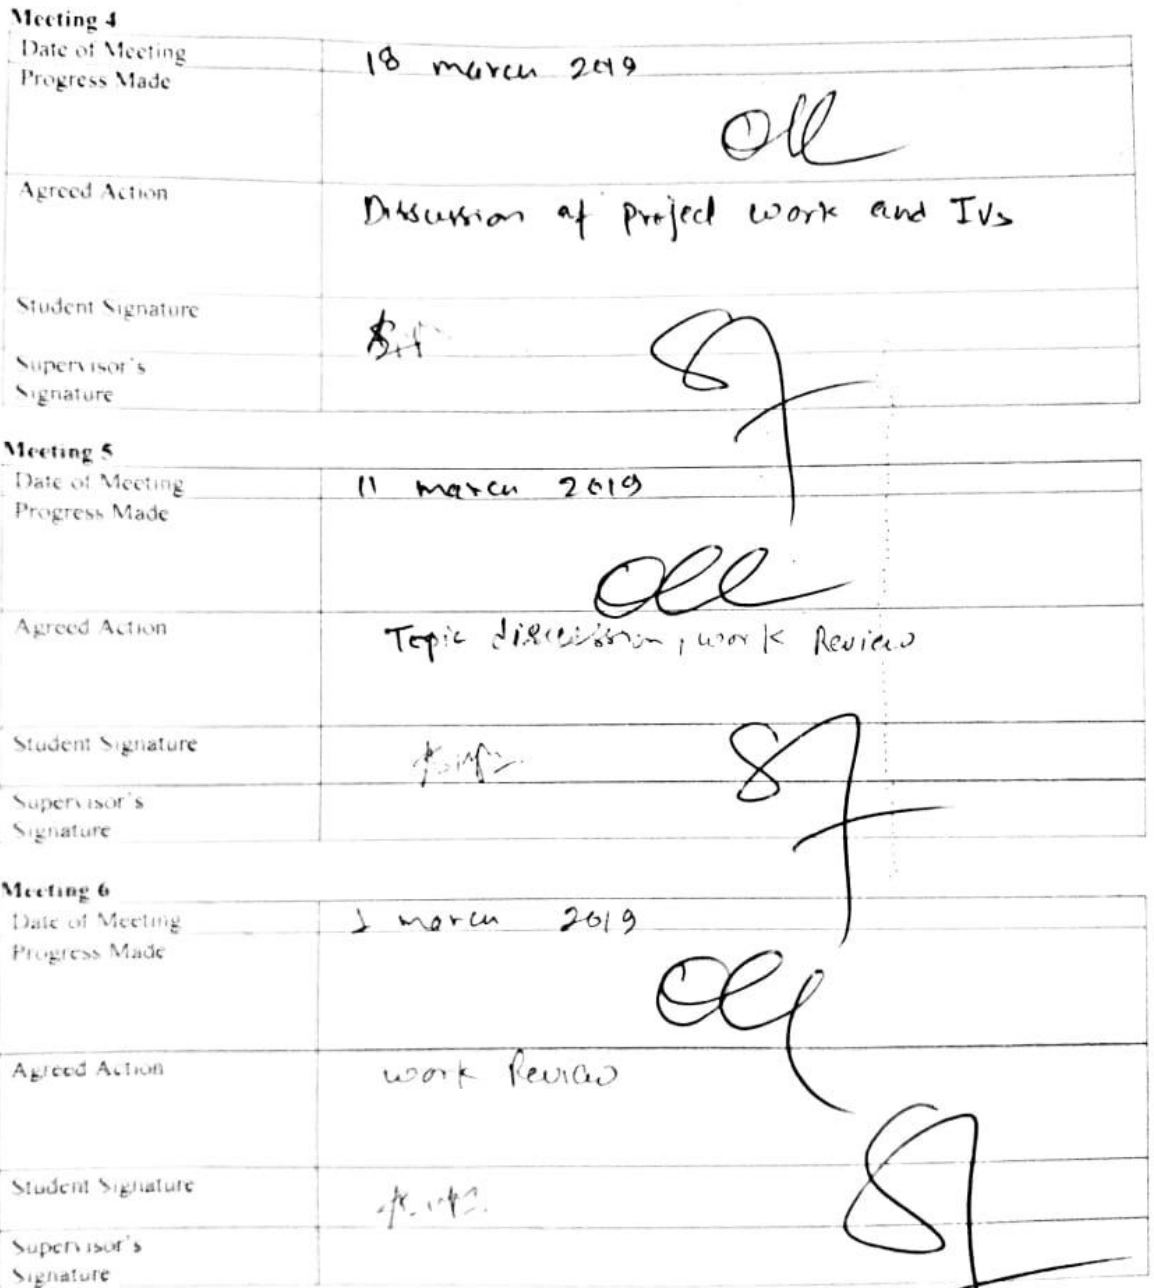 Meeting 4
Date of Meeting 18 march 2019
Progress Made
Agreed Action Disscussion of project work and IVs
Student Signature
Supervisor's
Signature
Meeting 5
Date of Meeting 11 march 2019
Progress Made
Agreed Action Topic discussion, work Review
Student Signature
Supervisor's
Signature
Meeting 6
Date of Meeting 1 march 2019
Progress Made
Agreed Action work Review
Student Signature
Supervisor's
Signature